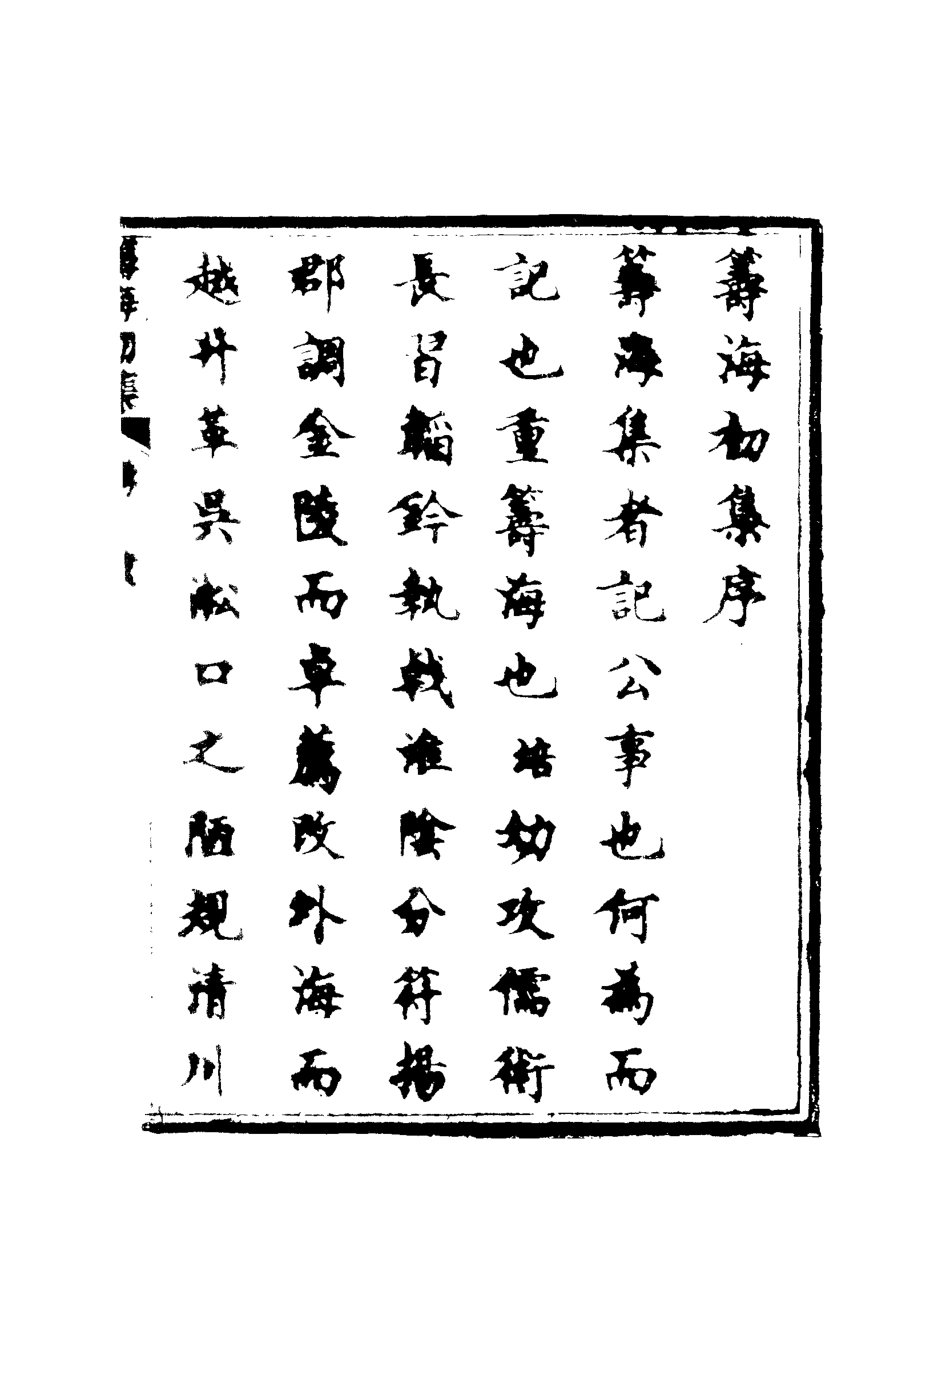 籌海初集序
籌海集者記公事也何為而
記也重籌海也培幼攻儒術
長習韜鈐執戟淮陰分符揚
郡調金陵而卓薦改外海而
越升革吳淞口之陋規清川
籌海初集